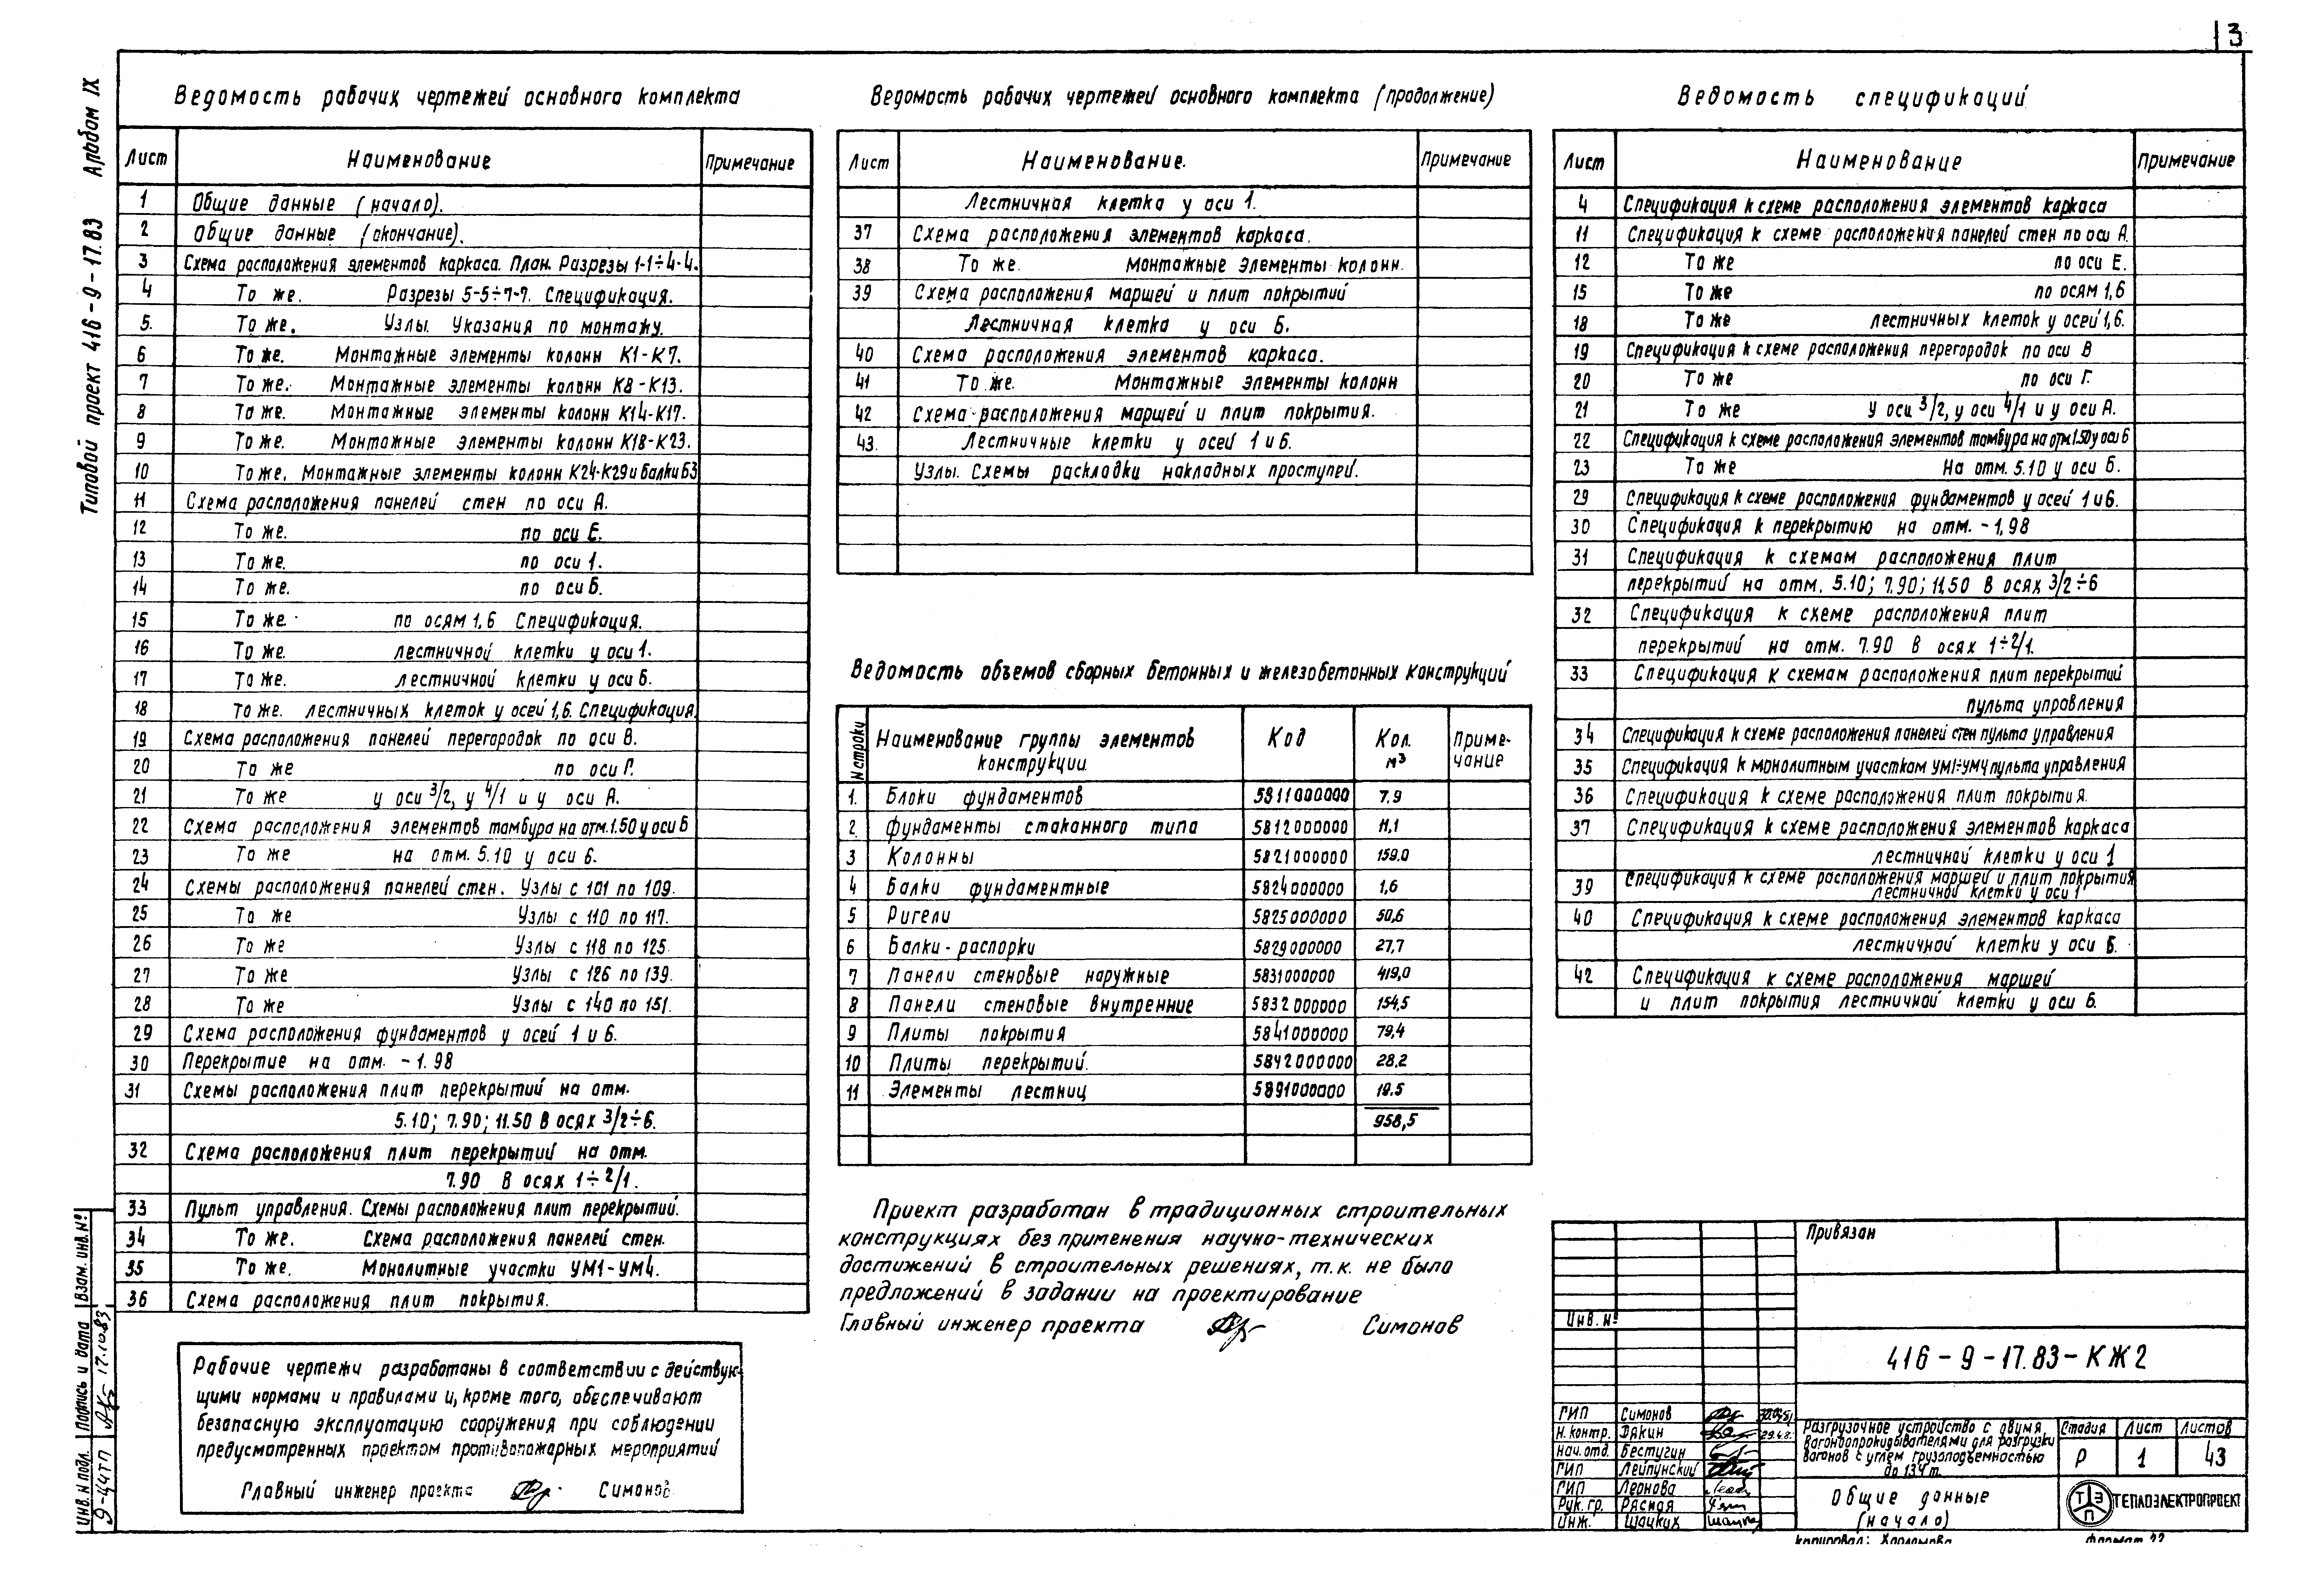 3
Альбом IX
Типовой проект 416-9-17.83
Ведомость рабочих чертежей основного комплекта
Лист Наименование Примечание
1 Общие данные (начало).
2 Общие данные (окончание).
3 Схема расположения элементов каркаса. План. Разрезы 1-1÷4-4.
4 То же. Разрезы 5-5÷7-7. Спецификация.
5. То же. Узлы. Указания по монтажу.
6 То же. Монтажные элементы колонн К1-К7.
7 То же. Монтажные элементы колонн К8-К13.
8 То же. Монтажные элементы колонн К14-К17.
9 То же. Монтажные элементы колонн К18-К23.
10 То же. Монтажные элементы колонн К24-К29 и балки Б3
11 Схема расположения панелей стен по оси А.
12 То же. по оси Е.
13 То же. по оси 1.
14 То же. по оси 6.
15 То же. по осям 1,6 Спецификация.
16 То же. лестничной клетки у оси 1.
17 То же. лестничной клетки у оси 6.
18 То же. лестничных клеток у осей 1,6. Спецификация.
19 Схема расположения панелей перегородок по оси В.
20 То же по оси Г.
21 То же у оси 3/2, у 4/1 и у оси А.
22 Схема расположения элементов тамбура на отм. 1.50 у оси 6
23 То же на отм. 5.10 у оси 6.
24 Схемы расположения панелей стен. Узлы с 101 по 109.
25 То же Узлы с 110 по 117.
26 То же Узлы с 118 по 125.
27 То же Узлы с 126 по 139.
28 То же Узлы с 140 по 151.
29 Схема расположения фундаментов у осей 1 и 6.
30 Перекрытие на отм. -1.98
31 Схемы расположения плит перекрытий на отм.
5.10; 7.90; 11.50 в осях 3/2÷6.
32 Схема расположения плит перекрытий на отм.
7.90 в осях 1÷2/1.
33 Пульт управления. Схемы расположения плит перекрытий.
34 То же. Схема расположения панелей стен.
35 То же. Монолитные участки УМ1-УМ4.
36 Схема расположения плит покрытия.
Рабочие чертежи разработаны в соответствии с действую-
щими нормами и правилами и, кроме того, обеспечивают
безопасную эксплуатацию сооружения при соблюдении
предусмотренных проектом противопожарных мероприятий
Главный инженер проекта Симонов
Ведомость рабочих чертежей основного комплекта (продолжение)
Лист Наименование. Примечание
Лестничная клетка у оси 1.
37 Схема расположения элементов каркаса.
38 То же. Монтажные элементы колонн.
39 Схема расположения маршей и плит покрытий
Лестничная клетка у оси 6.
40 Схема расположения элементов каркаса.
41 То же. Монтажные элементы колонн
42 Схема расположения маршей и плит покрытия.
43. Лестничные клетки у осей 1 и 6.
Узлы. Схемы раскладки накладных проступей.
Ведомость объемов сборных бетонных и железобетонных конструкций
N строки Наименование группы элементов конструкции Код Кол. м³ Приме-чание
1. Блоки фундаментов 5811000000 7.9
2 Фундаменты стаканного типа 5812000000 11,1
3 Колонны 5821000000 159.0
4 Балки фундаментные 5824000000 1,6
5 Ригели 5825000000 50,6
6 Балки-распорки 5829000000 27,7
7 Панели стеновые наружные 5831000000 419,0
8 Панели стеновые внутренние 5832000000 154,5
9 Плиты покрытия 5841000000 79,4
10 Плиты перекрытий. 5842000000 28.2
11 Элементы лестниц 5891000000 19.5
958,5
Проект разработан в традиционных строительных
конструкциях без применения научно-технических
достижений в строительных решениях, т.к. не было
предложений в задании на проектирование
Главный инженер проекта Симонов
Ведомость спецификаций
Лист Наименование Примечание
4 Спецификация к схеме расположения элементов каркаса
11 Спецификация к схеме расположения панелей стен по оси А.
12 То же по оси Е.
15 То же по осям 1,6
18 То же лестничных клеток у осей 1,6.
19 Спецификация к схеме расположения перегородок по оси В
20 То же по оси Г.
21 То же у оси 3/2, у оси 4/1 и у оси А.
22 Спецификация к схеме расположения элементов тамбура на отм 1.50 у оси 6
23 То же На отм. 5.10 у оси 6.
29 Спецификация к схеме расположения фундаментов у осей 1 и 6.
30 Спецификация к перекрытию на отм. -1,98
31 Спецификация к схемам расположения плит
перекрытий на отм. 5.10; 7.90; 11.50 в осях 3/2÷6
32 Спецификация к схеме расположения плит
перекрытий на отм. 7.90 в осях 1÷2/1.
33 Спецификация к схемам расположения плит перекрытий
пульта управления
34 Спецификация к схеме расположения панелей стен пульта управления
35 Спецификация к монолитным участкам УМ1÷УМ4 пульта управления
36 Спецификация к схеме расположения плит покрытия.
37 Спецификация к схеме расположения элементов каркаса
лестничной клетки у оси 1
39 Спецификация к схеме расположения маршей и плит покрытия
лестничной клетки у оси 1
40 Спецификация к схеме расположения элементов каркаса
лестничной клетки у оси 6.
42 Спецификация к схеме расположения маршей
и плит покрытия лестничной клетки у оси 6.
Привязан
Инв. №
416-9-17.83-КЖ2
ГИП Симонов
Н. контр. Дякин
Нач. отд. Бестугин
ГИП Лейпунский
ГИП Леонова
Рук. гр. Рясная
Инж. Шацких
Разгрузочное устройство с двумя
вагоноопрокидывателями для разгрузки
вагонов с углем грузоподъемностью
до 134 т.
Стадия Лист Листов
Р 1 43
Общие данные
(начало)
ТЭП
ТЕПЛОЭЛЕКТРОПРОЕКТ
Копировал: Харламова
Формат 22
Инв. N подл. Подпись и дата Взам. инв. N°
9-44ТП 17.10.83